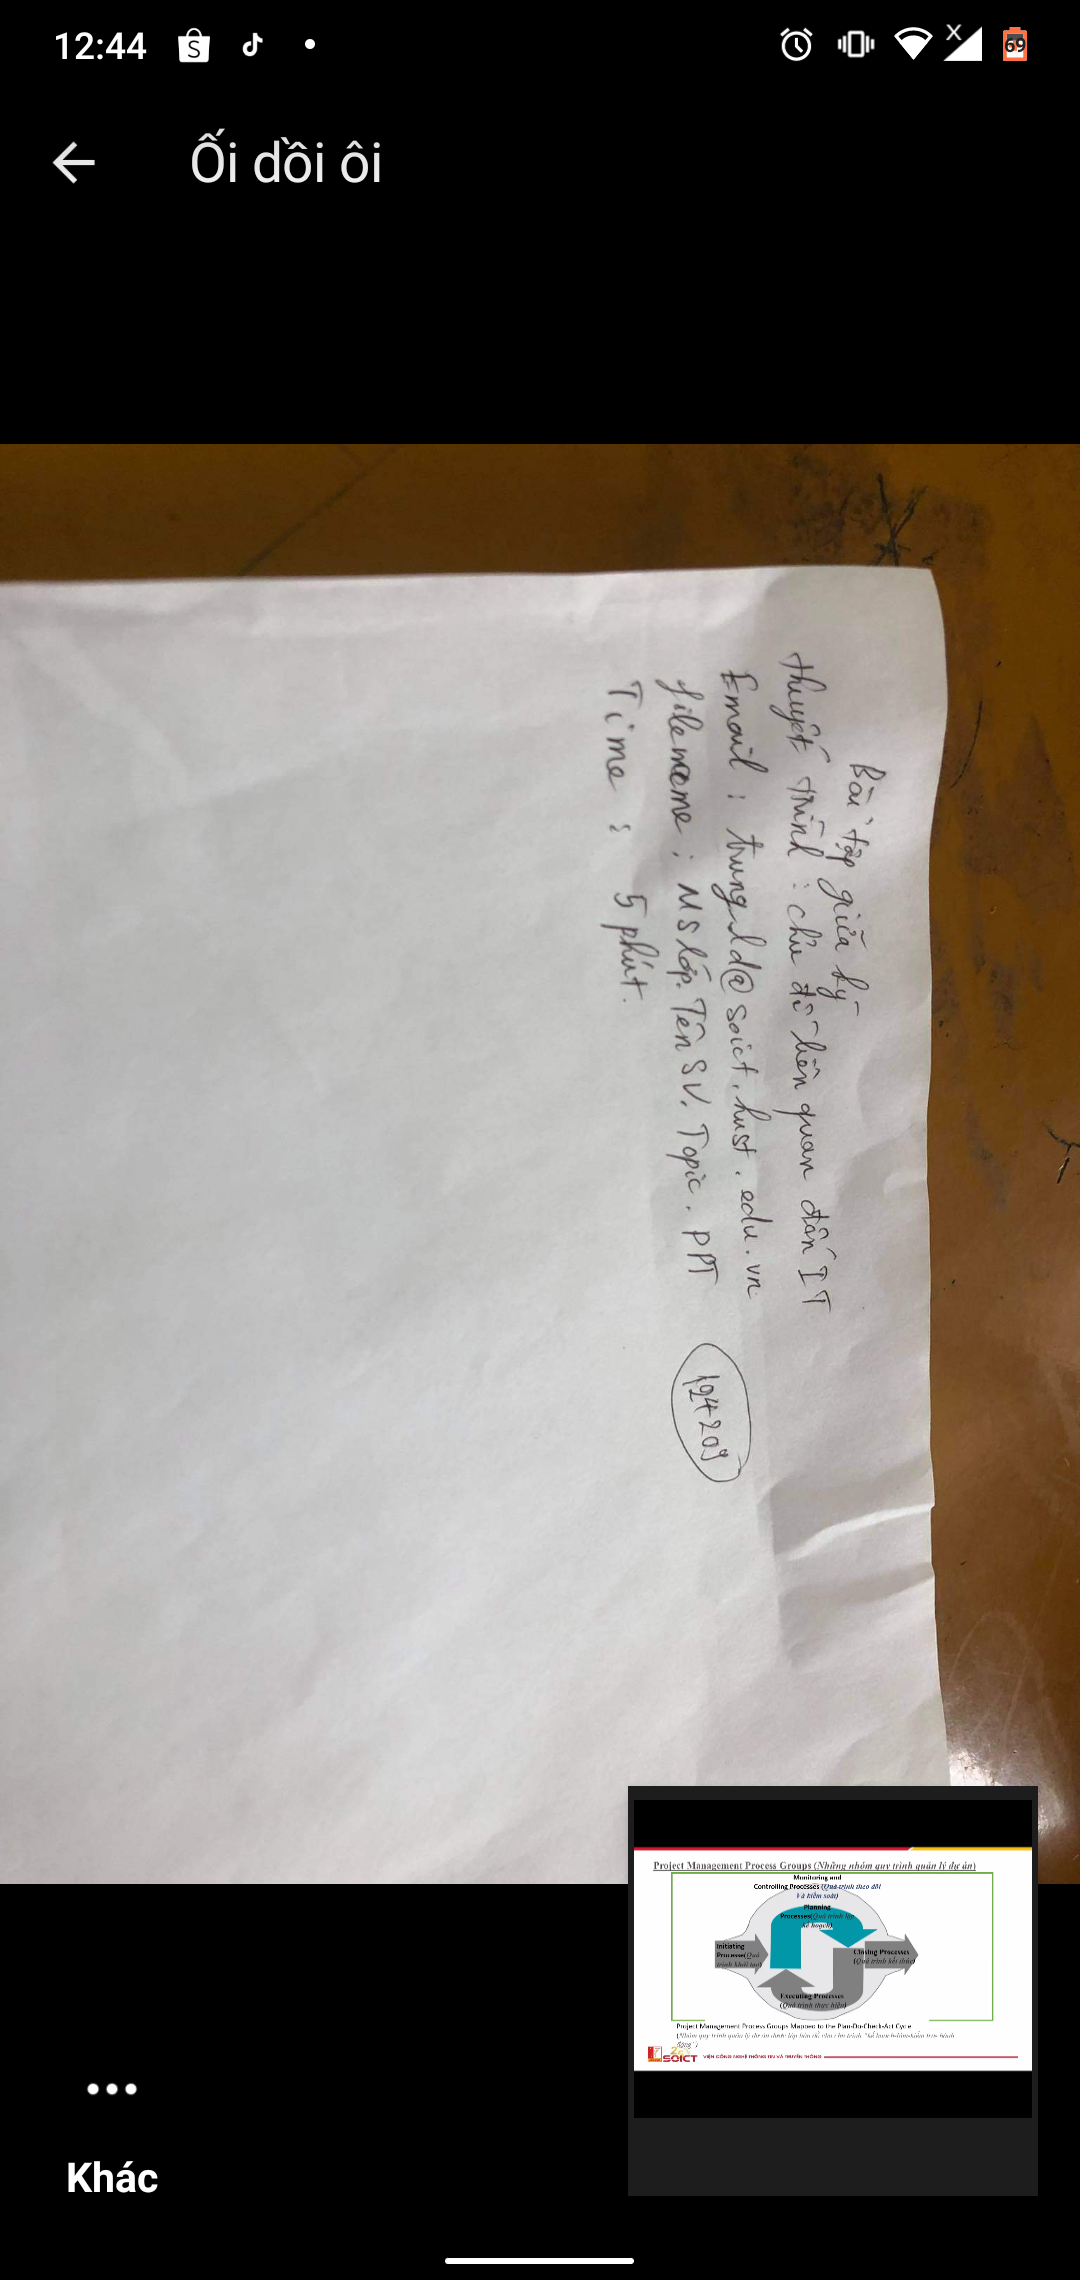 12:44
69
Ối dồi ôi
Bài tập giữa kỳ
Thuyết trình : chủ đề liên quan đến IT
Email : trungld@soict.hust.edu.vn
filename : MS lớp. Tên SV. Topic. PPT
Time : 5 phút.
Project Management Process Groups (Những nhóm quy trình quản lý dự án)
Monitoring and
Controlling Processes (Quá trình theo dõi
Và kiểm soát)
Planning
Processes(Quá trình lập
kế hoạch)
Initiating
Processe(Quá
trình khởi tạo)
Closing Processes
(Quá trình kết thúc)
Executing Processes
(Quá trình thực hiện)
Project Management Process Groups Mapped to the Plan-Do-Check-Act Cycle
SOICT VIỆN CÔNG NGHỆ THÔNG TIN VÀ TRUYỀN THÔNG
Khác